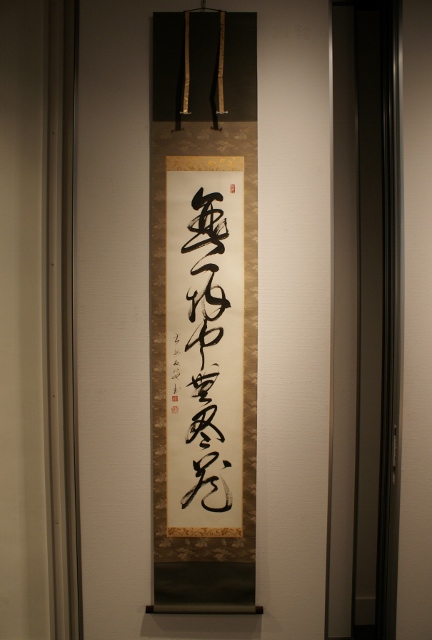 無一物中無尽蔵